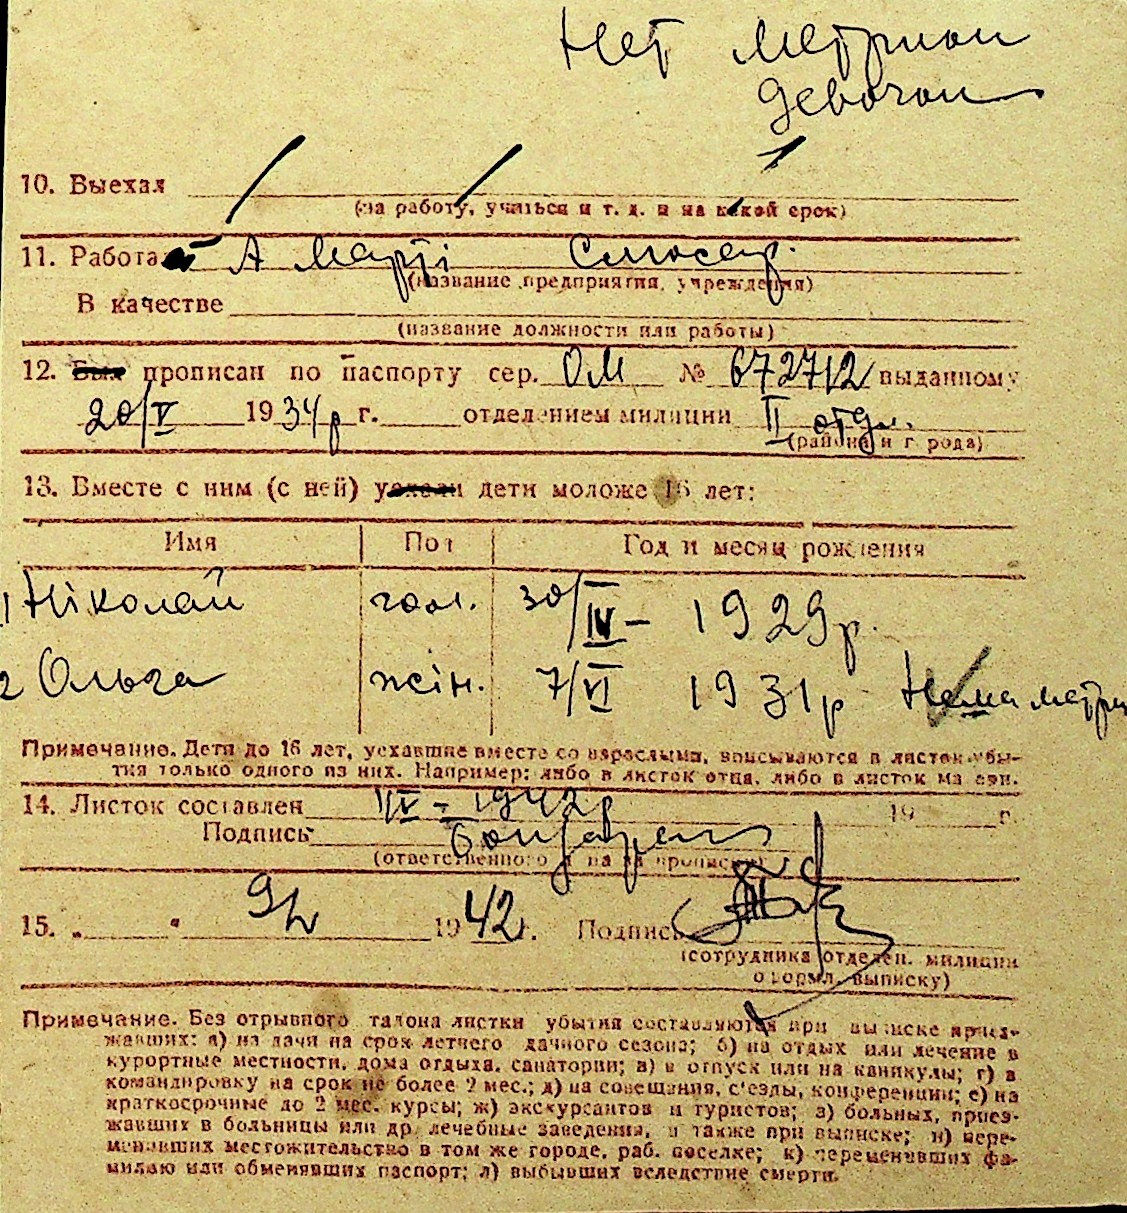 Нет метрики
девочки
10. Выехал
(на работу, учиться и т. д. и на какой срок)
11. Работает А Марті Слюсар.
(название предприятия, учреждения)
В качестве
(название должности или работы)
12. Был прописан по паспорту сер. ОМ № 672712 выданному
20/V 1934р г. отделением милиции II отд.
(района и города)
13. Вместе с ним (с ней) уехали дети моложе 16 лет:
Имя Пол Год и месяц рождения
1 Ніколай чол. 30/IV - 1929р.
2 Ольга жін. 7/VI 1931р Нема метри
Примечание. Дети до 16 лет, уехавшие вместе со взрослыми, вписываются в листок убы-
тия только одного из них. Например: либо в листок отца, либо в листок матери.
14. Листок составлен 1/IV - 1942р 19 г.
Подпись
(ответственного лица за прописку)
15. „ " 1942 г. Подпись
(сотрудника отделен. милиции
оформл. выписку)
Примечание. Без отрывного талона листки убытия составляются при выписке приез-
жавших: а) на дачи на срок летнего дачного сезона; б) на отдых или лечение в
курортные местности, дома отдыха, санатории; в) в отпуск или на каникулы; г) в
командировку на срок не более 2 мес.; д) на совещания, съезды, конференции; е) на
краткосрочные до 2 мес. курсы; ж) экскурсантов и туристов; з) больных, приез-
жавших в больницы или др. лечебные заведения, а также при выписке; и) пере-
менивших местожительство в том же городе, раб. поселке; к) переменивших фа-
милию или обменявших паспорт; л) выбывших вследствие смерти.